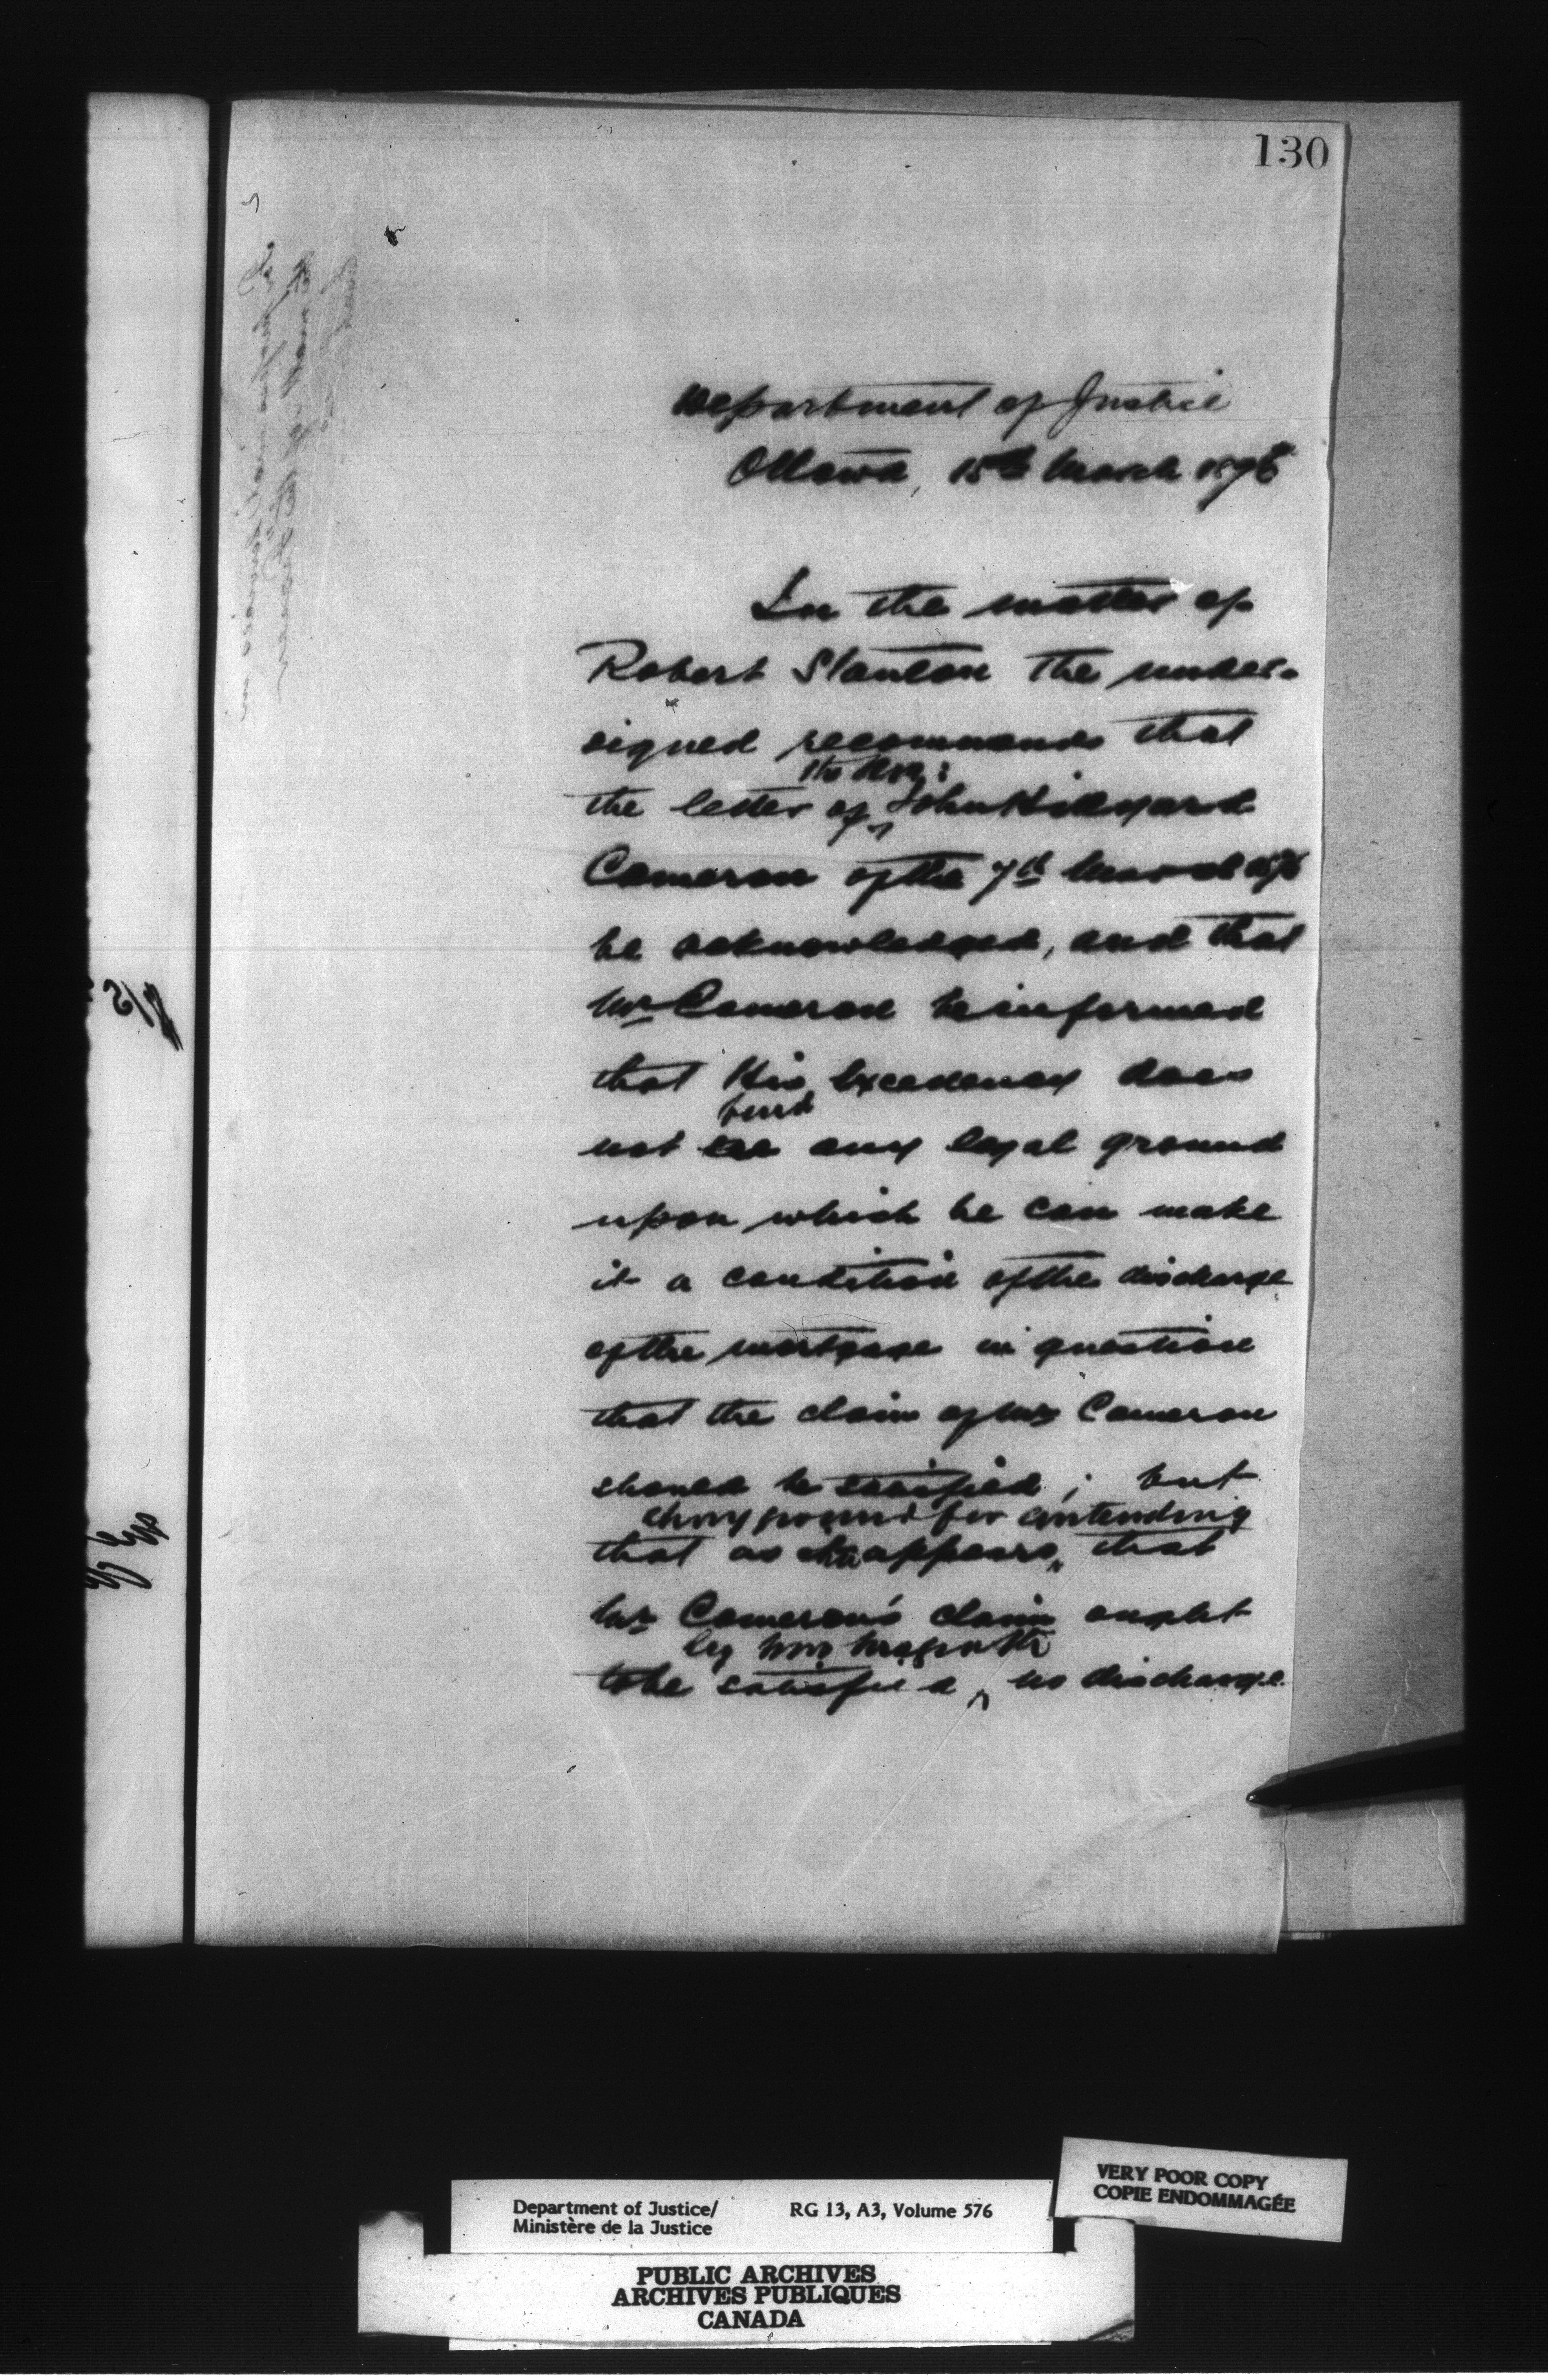 130
Department of Justice
Ottawa, 15th March 1876
In the matter of
Robert Stanton the under-
signed recommends that
the Hon:
the letter of John Hillyard
Cameron of the 7th March 1876
be acknowledged, and that
Mr Cameron be informed
that His Excellency does
find
not see any legal ground
upon which he can make
it a condition of the discharge
of the mortgage in question
that the claim of Mr Cameron
should be satisfied; but
ground for contending
that as appears, that
Mr Cameron's claim ought
by
to be satisfied, no discharge
Department of Justice/
Ministère de la Justice
RG 13, A3, Volume 576
VERY POOR COPY
COPIE ENDOMMAGÉE
PUBLIC ARCHIVES
ARCHIVES PUBLIQUES
CANADA